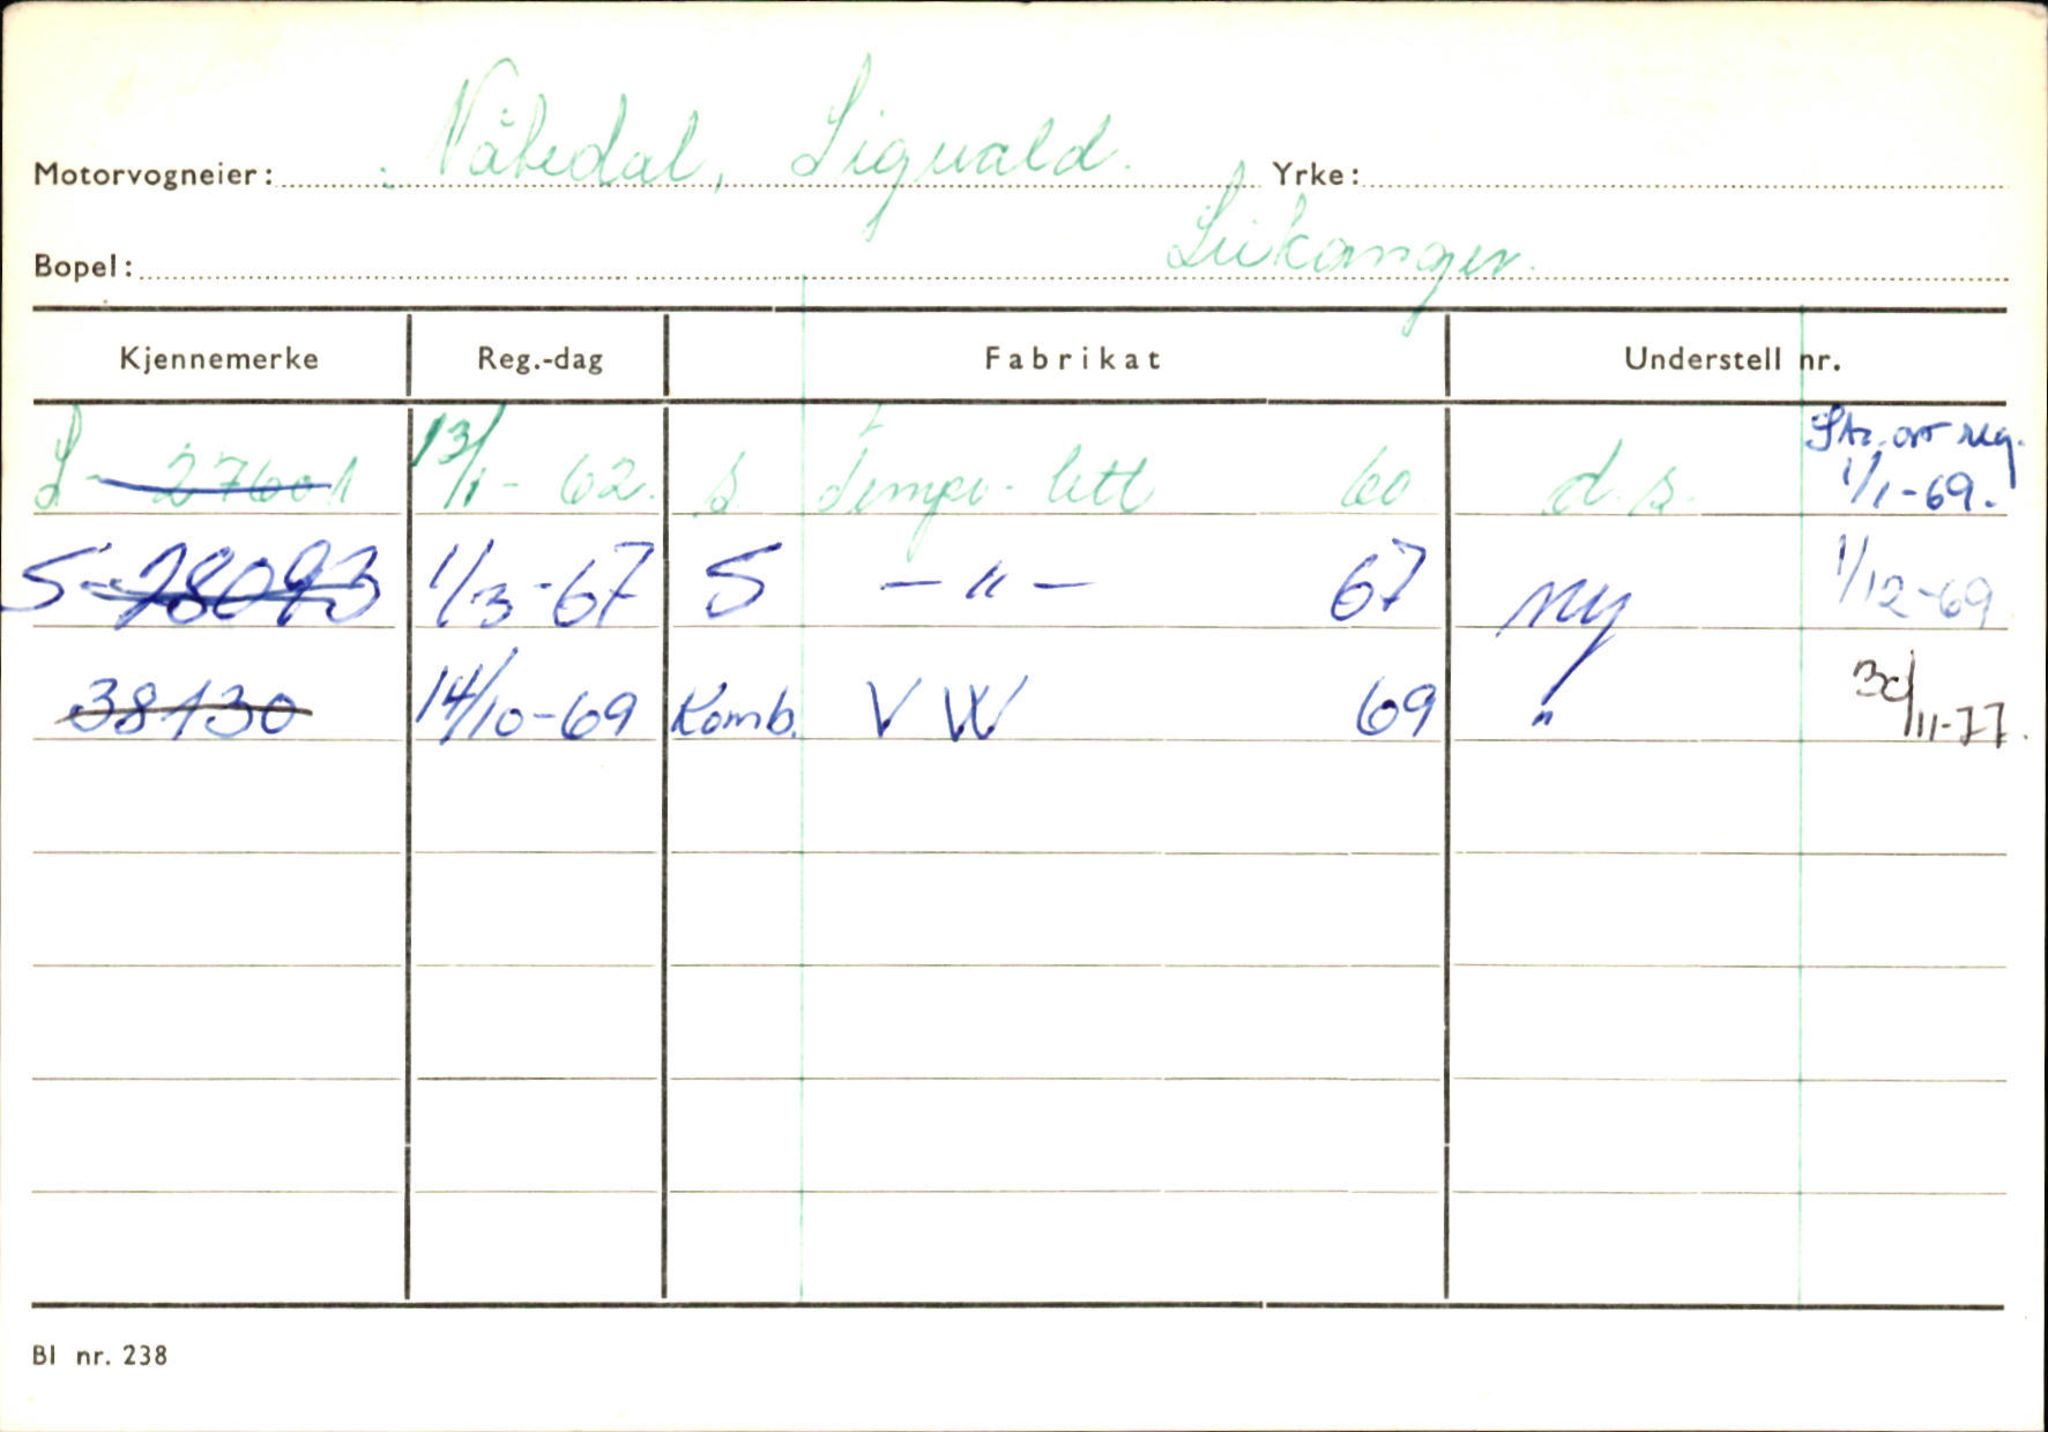 Motorvogneier: Nåbedal, Sigvald. Yrke:
Bopel: Leikanger.
Kjennemerke Reg.-dag Fabrikat Understell nr.
S-27601 13/1-62. S Tempo-lett 60 d.s. Str. av reg. 1/1-69.
S-28093 1/3-67 S -"- 67 ny 1/12-69
38130 14/10-69 Komb. VW 69 " 30/11-77.
Bl nr. 238